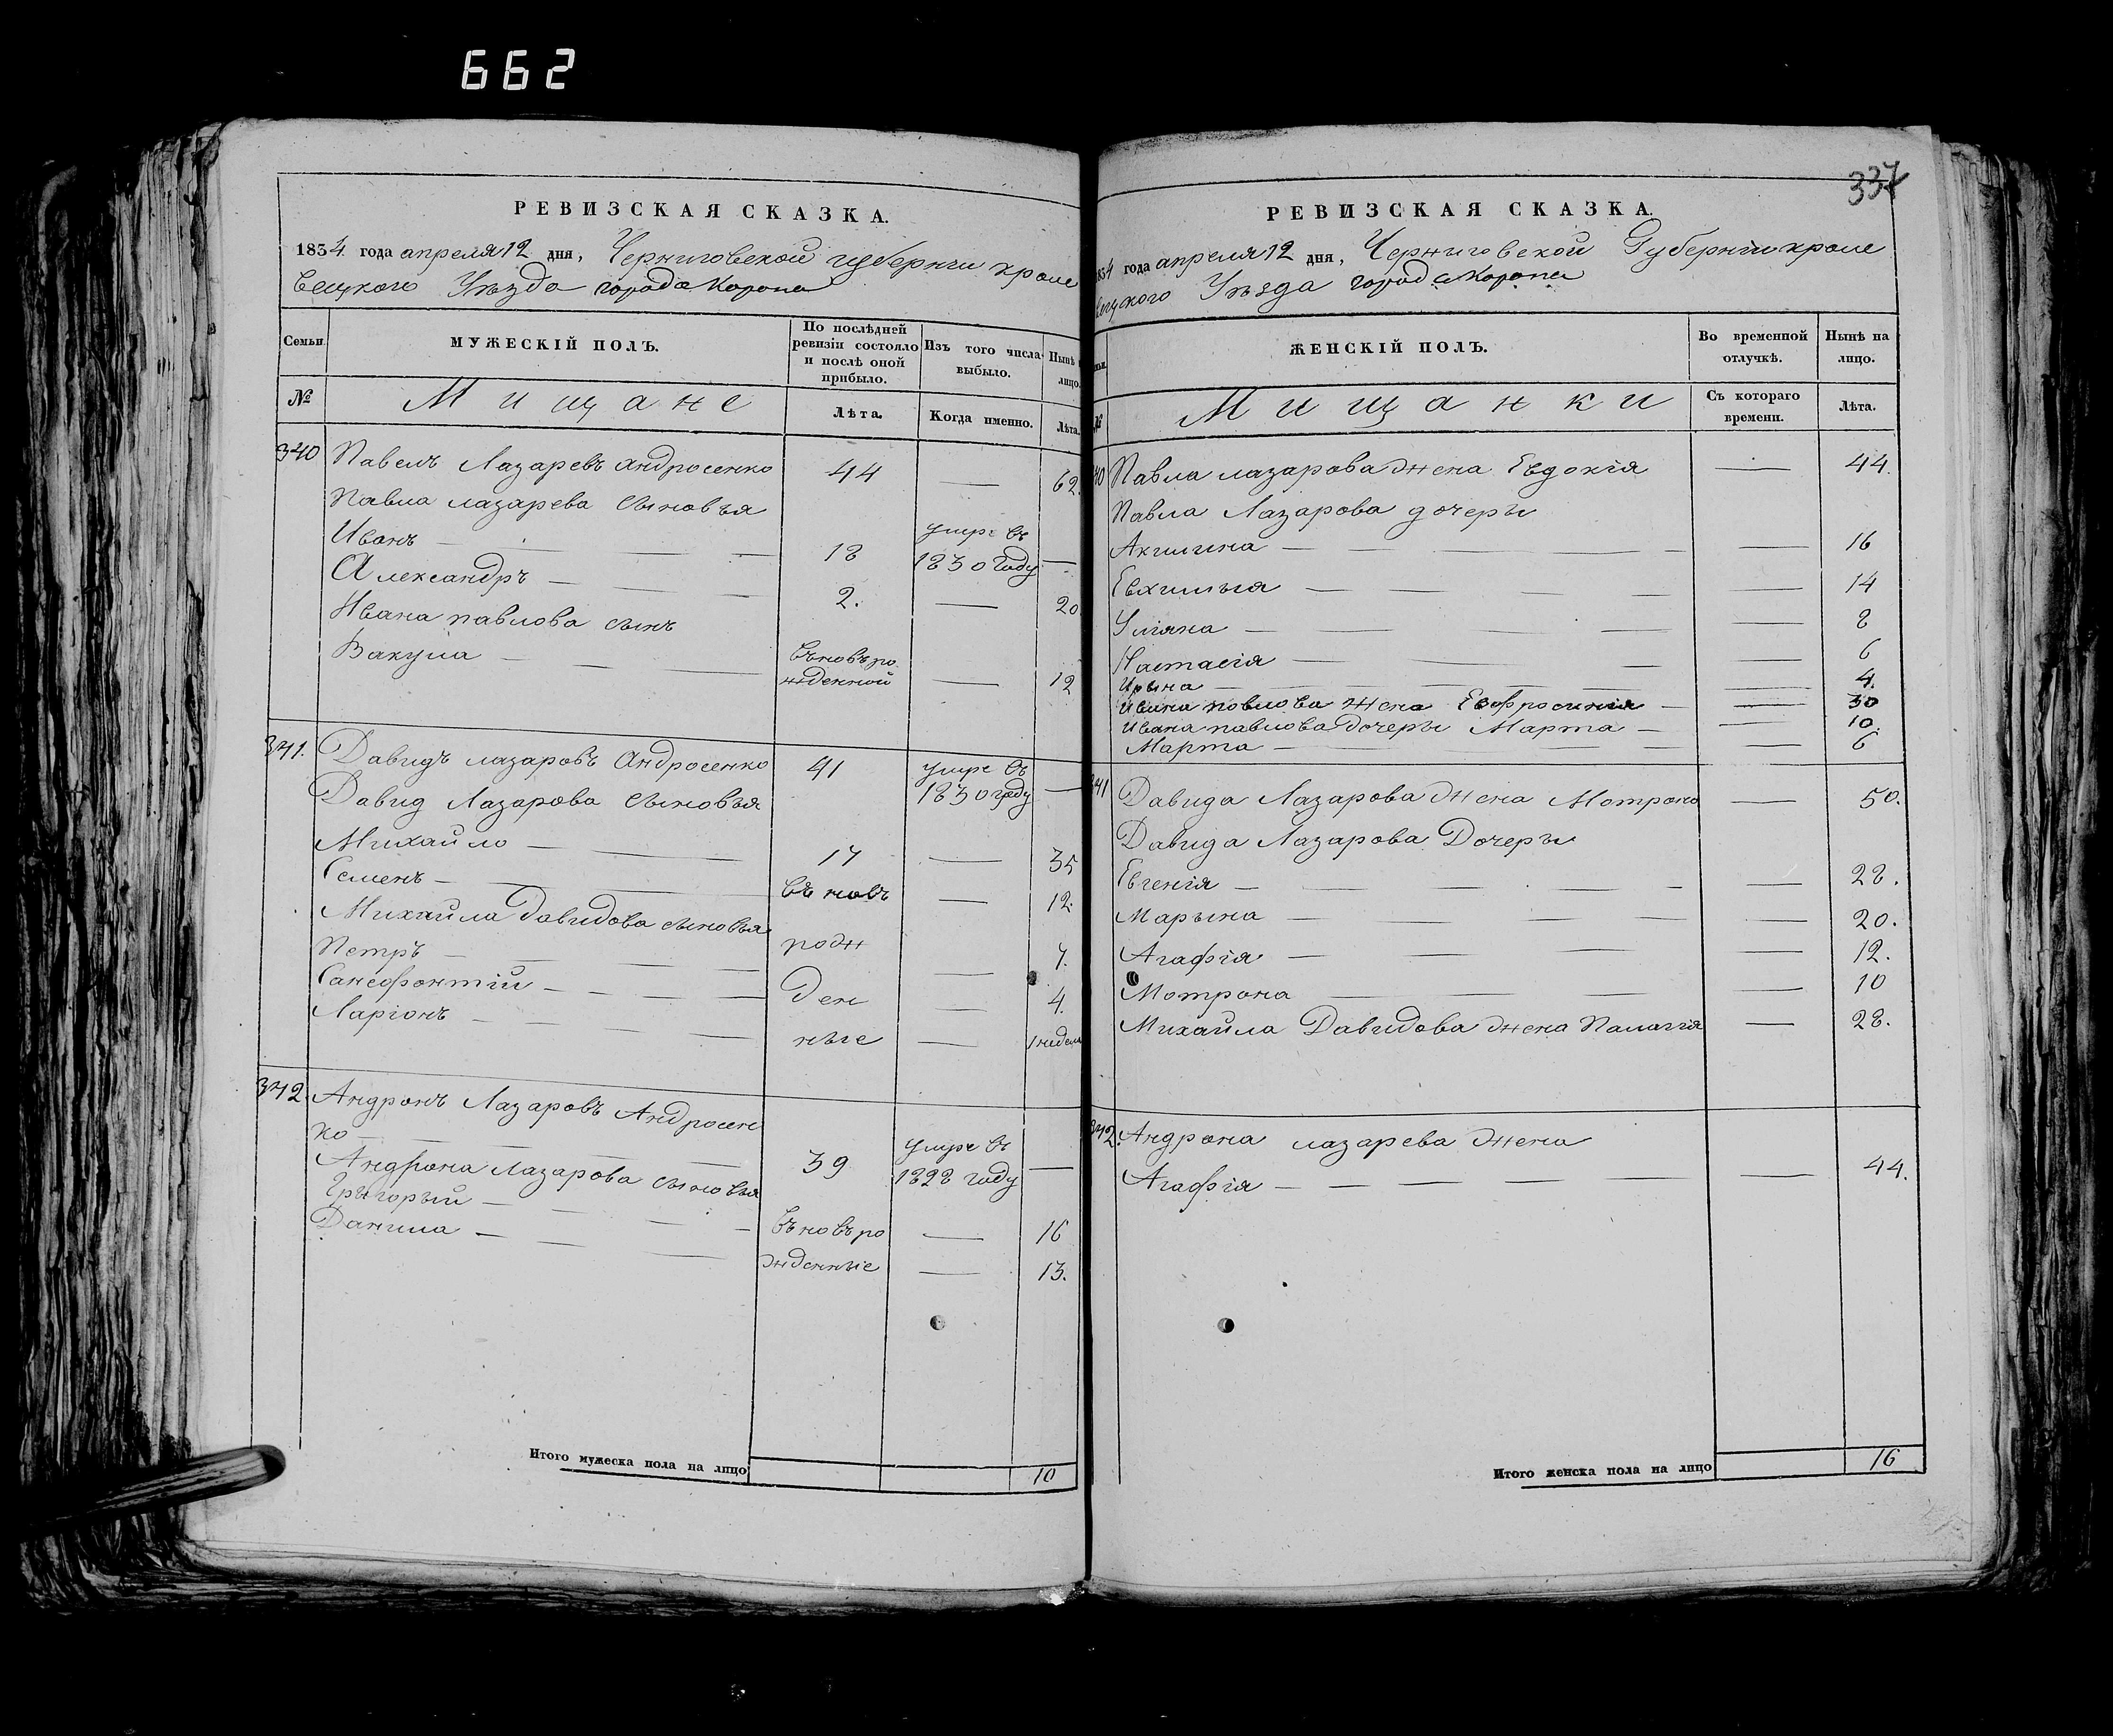 662
РЕВИЗСКАЯ СКАЗКА.
1834 года апреля 12 дня, Черниговской губернии кроле
вецкого Уъзда города Коропа
Семьи.
МУЖЕСКІЙ ПОЛЪ.
По послѣдней ревизіи состояло и послѣ оной прибыло.
Изъ того числа выбыло.
Нынѣ лицо.
№
Мищане
Лѣта.
Когда именно.
Лѣта.
340 Павелъ Лазаревъ Андросенко 44 — 62.
Павла лазарева сыновья
Иванъ — 18 умре въ 1830 году —
Александръ — 2. — 20
Ивана павлова сынъ
Вакула — вьновъро жденной — 12
341. Давидъ лазаровъ Андросенко 41 умре въ 1830 году —
Давид Лазарова сыновья
Михайло — 17 — 35
Семенъ — вь новъ — 12.
Михайла Давидова сыновья
Петръ — рож — 7.
Санефонтій — ден — 4.
Ларіонъ — ные — 1 недел
342. Андронъ Лазаровъ Андросен
ко — 39 умре въ 1828 году —
Андрона Лазарова сыновья
Григорый — вьновъро — 16
Данила — жденные — 13.
Итого мужеска пола на лицо 10
337
РЕВИЗСКАЯ СКАЗКА.
1834 года апреля 12 дня, Черниговской Губерніи кроле
вецкого Уъзда города Коропа
ЖЕНСКІЙ ПОЛЪ.
Во временной отлучкѣ.
Нынѣ на лицо.
№
Мищанки
Съ котораго времени.
Лѣта.
40 Павла лазарова жена Евдокія — 44.
Павла Лазарова дочеры
Акилина — 16
Евхимыя — 14
Уліяна — 8
Настасія — 6
Ирына — 4.
Ивана павлова жена Евфросинія — 30
Ивана павлова Дочеры Марта — 10.
Марта — 6
341 Давида Лазарова жена Мотрона — 50.
Давида Лазарова Дочеры
Евгенія — 28.
Марына — 20.
Агафія — 12.
Мотрона — 10
Михайла Давидова жена Палагія — 28.
342. Андрона лазарева жена
Агафія — 44.
Итого женска пола на лицо 16